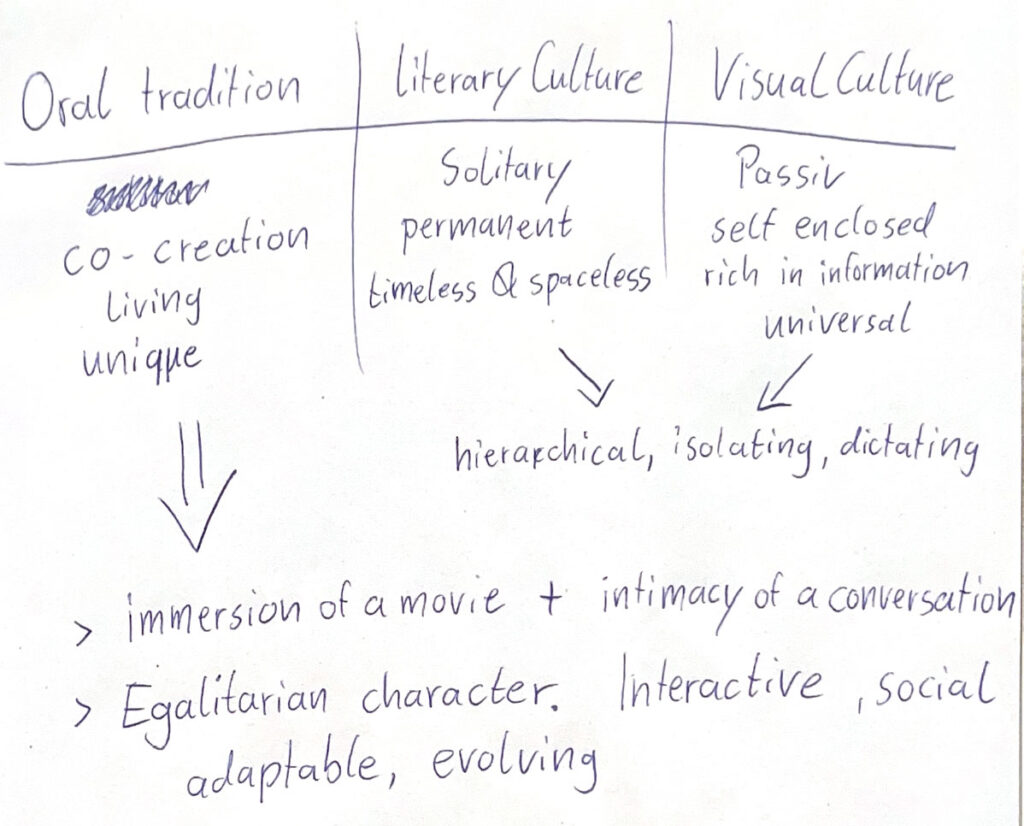 Oral tradition
co-creation
living
unique
Literary Culture
Solitary
permanent
timeless & spaceless
Visual Culture
Passiv
self enclosed
rich in information
universal
hierarchical, isolating, dictating
> immersion of a movie + intimacy of a conversation
> Egalitarian character. Interactive, social
adaptable, evolving